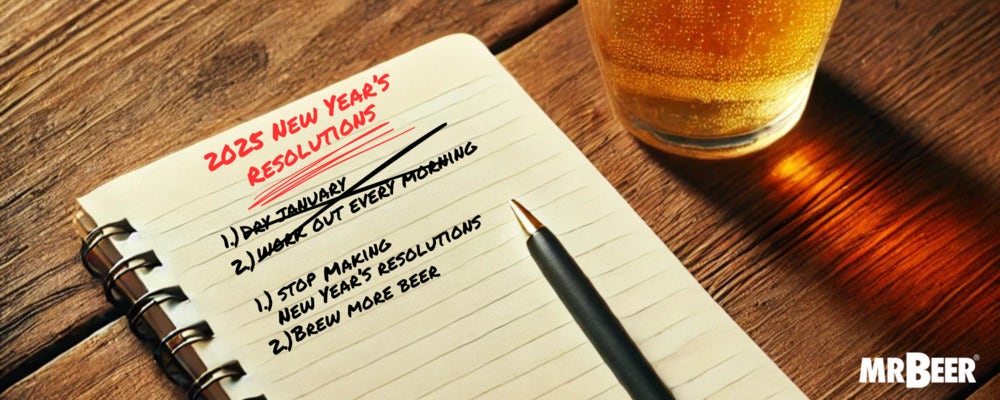 2025 NEW YEAR'S
RESOLUTIONS
1.) DRY JANUARY
2.) WORK OUT EVERY MORNING
1.) STOP MAKING
NEW YEAR'S RESOLUTIONS
2.) BREW MORE BEER
MRBEER®